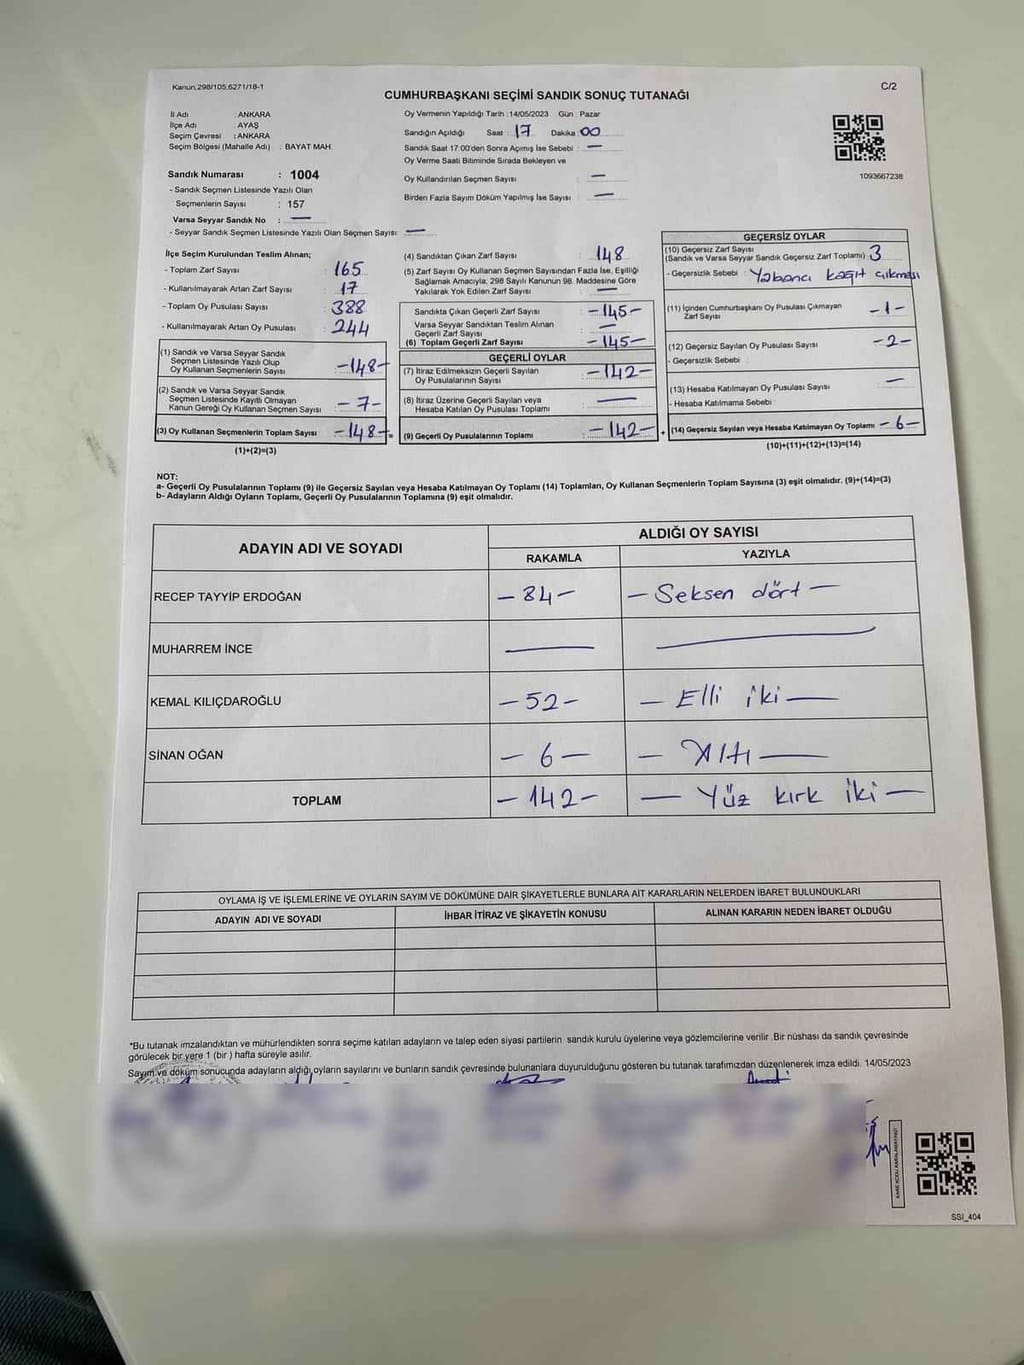 Kanun;298/105,6271/18-1
C/2
CUMHURBAŞKANI SEÇİMİ SANDIK SONUÇ TUTANAĞI
İl Adı : ANKARA
İlçe Adı : AYAŞ
Seçim Çevresi : ANKARA
Seçim Bölgesi (Mahalle Adı) : BAYAT MAH.
Sandık Numarası : 1004
- Sandık Seçmen Listesinde Yazılı Olan
Seçmenlerin Sayısı : 157
Varsa Seyyar Sandık No : —
- Seyyar Sandık Seçmen Listesinde Yazılı Olan Seçmen Sayısı: —
Oy Vermenin Yapıldığı Tarih :14/05/2023 Gün : Pazar
Sandığın Açıldığı Saat : 17 Dakika : 00
Sandık Saat 17:00'den Sonra Açımış İse Sebebi : —
Oy Verme Saati Bitiminde Sırada Bekleyen ve
Oy Kullandırılan Seçmen Sayısı : —
Birden Fazla Sayım Döküm Yapılmış İse Sayısı : —
1093667238
İlçe Seçim Kurulundan Teslim Alınan;
- Toplam Zarf Sayısı : 165
- Kullanılmayarak Artan Zarf Sayısı : 17
- Toplam Oy Pusulası Sayısı : 388
- Kullanılmayarak Artan Oy Pusulası : 244
(1) Sandık ve Varsa Seyyar Sandık
Seçmen Listesinde Yazılı Olup
Oy Kullanan Seçmenlerin Sayısı -148-
(2) Sandık ve Varsa Seyyar Sandık
Seçmen Listesinde Kayıtlı Olmayan
Kanun Gereği Oy Kullanan Seçmen Sayısı - 7 -
(3) Oy Kullanan Seçmenlerin Toplam Sayısı -148-
(1)+(2)=(3)
(4) Sandıktan Çıkan Zarf Sayısı : 148
(5) Zarf Sayısı Oy Kullanan Seçmen Sayısından Fazla İse, Eşitliği
Sağlamak Amacıyla; 298 Sayılı Kanunun 98. Maddesine Göre
Yakılarak Yok Edilen Zarf Sayısı : —
Sandıkta Çıkan Geçerli Zarf Sayısı -145-
Varsa Seyyar Sandıktan Teslim Alınan
Geçerli Zarf Sayısı —
(6) Toplam Geçerli Zarf Sayısı -145-
GEÇERLİ OYLAR
(7) İtiraz Edilmeksizin Geçerli Sayılan
Oy Pusulalarının Sayısı -142-
(8) İtiraz Üzerine Geçerli Sayılan veya
Hesaba Katılan Oy Pusulası Toplamı —
(9) Geçerli Oy Pusulalarının Toplamı -142-
GEÇERSİZ OYLAR
(10) Geçersiz Zarf Sayısı
(Sandık ve Varsa Seyyar Sandık Geçersiz Zarf Toplamı) : 3
- Geçersizlik Sebebi : Yabancı kağıt çıkması
(11) İçinden Cumhurbaşkanı Oy Pusulası Çıkmayan
Zarf Sayısı -1-
(12) Geçersiz Sayılan Oy Pusulası Sayısı -2-
- Geçersizlik Sebebi :
(13) Hesaba Katılmayan Oy Pusulası Sayısı —
- Hesaba Katılmama Sebebi :
(14) Geçersiz Sayılan veya Hesaba Katılmayan Oy Toplamı - 6 -
(10)+(11)+(12)+(13)=(14)
NOT:
a- Geçerli Oy Pusulalarının Toplamı (9) ile Geçersiz Sayılan veya Hesaba Katılmayan Oy Toplamı (14) Toplamları, Oy Kullanan Seçmenlerin Toplam Sayısına (3) eşit olmalıdır. (9)+(14)=(3)
b- Adayların Aldığı Oyların Toplamı, Geçerli Oy Pusulalarının Toplamına (9) eşit olmalıdır.
ADAYIN ADI VE SOYADI
ALDIĞI OY SAYISI
RAKAMLA YAZIYLA
RECEP TAYYİP ERDOĞAN - 84 - - Seksen dört -
MUHARREM İNCE — —
KEMAL KILIÇDAROĞLU - 52 - - Elli iki -
SİNAN OĞAN - 6 - - Altı -
TOPLAM - 142 - - Yüz kırk iki -
OYLAMA İŞ VE İŞLEMLERİNE VE OYLARIN SAYIM VE DÖKÜMÜNE DAİR ŞİKAYETLERLE BUNLARA AİT KARARLARIN NELERDEN İBARET BULUNDUKLARI
ADAYIN ADI VE SOYADI İHBAR İTİRAZ VE ŞİKAYETİN KONUSU ALINAN KARARIN NEDEN İBARET OLDUĞU
*Bu tutanak imzalandıktan ve mühürlendikten sonra seçime katılan adayların ve talep eden siyasi partilerin sandık kurulu üyelerine veya gözlemcilerine verilir. Bir nüshası da sandık çevresinde
görülecek bir yere 1 (bir ) hafta süreyle asılır.
Sayım ve döküm sonucunda adayların aldığı oyların sayılarını ve bunların sandık çevresinde bulunanlara duyurulduğunu gösteren bu tutanak tarafımızdan düzenlenerek imza edildi. 14/05/2023
KARE KODU KARALAMAYINIZ!
SSI_404